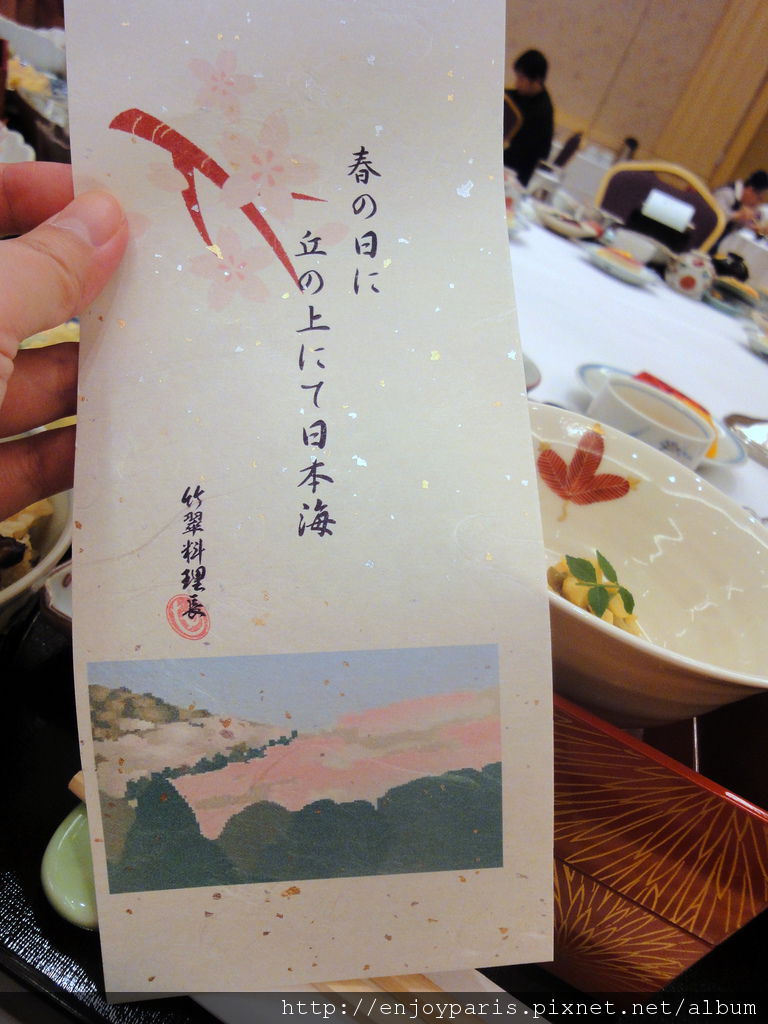 春の日に
丘の上にて日本海
竹翠料理長
http://enjoyparis.pixnet.net/album